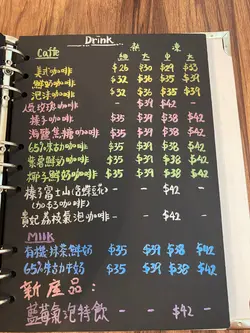 Drink
Caffe 熱 凍
細 大 中 大
美式咖啡 $26 $30 $29 $33
鮮奶咖啡 $32 $36 $35 $39
泡沫咖啡 $32 $36 $35 $39
玫瑰咖啡 - $39 $42 -
榛子咖啡 $35 $39 $38 $42
海鹽焦糖咖啡 $35 $39 $38 $42
65%朱古力咖啡 $35 $39 $38 $42
紫薯鮮奶咖啡 $35 $39 $38 $42
椰子鮮奶咖啡 $35 $39 $38 $42
榛子富士山 - - $42 -
(加$3咖啡)
貴妃荔枝氣泡咖啡 - - $42 -
Milk
有機抹茶鮮奶 $35 $39 $38 $42
65%朱古力牛奶 $35 $39 $38 $42
新產品:
藍莓氣泡特飲 - - $42 -